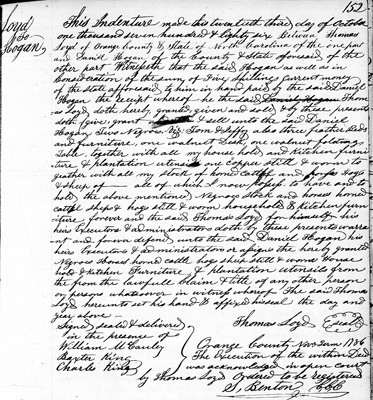 152
Loyd
to
Hogan
This Indenture made this twentieth third day of October
one thousand seven hundred & Eighty six between Thomas
Loyd of Orange County & State of North Carolina of the one part
and Daniel Hogan of the County & State aforesaid of the
other part Witnesseth that the said Hogan as well as in
Consideration of the sum of Five Shillings current money
of the state aforesaid to him in hand paid by the said Daniel
Hogan the receipt whereof he the said Thom
as Loyd doth hereby granted given and sold & by these presents
doth give grant & sell unto the said Daniel
Hogan Two Negroes Viz Tom & Suffy also three feather beds
and furniture, one walnut Desk, one walnut folding
Table, together with all my house hold, and kitchen furni
ture & plantation utensils one Copper still & worm to
geather with all my stock of horned cattle and Hogs
& Sheep of all of which I now to have and to
hold the above mentioned Negroes Stock and horses horned
cattle sheep & hogs still & worm household & Kitchen furni
ture forever and the said Thomas Loyd for himself his
heirs Executors & administrators doth by these presents warra
nt and forever defend unto the said Daniel Hogan his
heirs Executors & administrators or assigns the hereby granted
Negroes Horses horned cattle hogs sheep still & worm House
hold & kitchen Furniture & plantation utensils from
the from the lawfull claim & title of any other person
or persons whatsoever in witness whereof the said Thomas
Loyd hereunto set his hand & affixed his seal the day and
year above
Signed sealed & delivered Thomas Loyd Seal
in the presence of
William McCauley
Baxter King
Charles King
Orange County Nov Term 1786
The Execution of the within Deed
was acknowledged in open court
by Thomas Loyd Ordered to be registered
S. Benton CCC